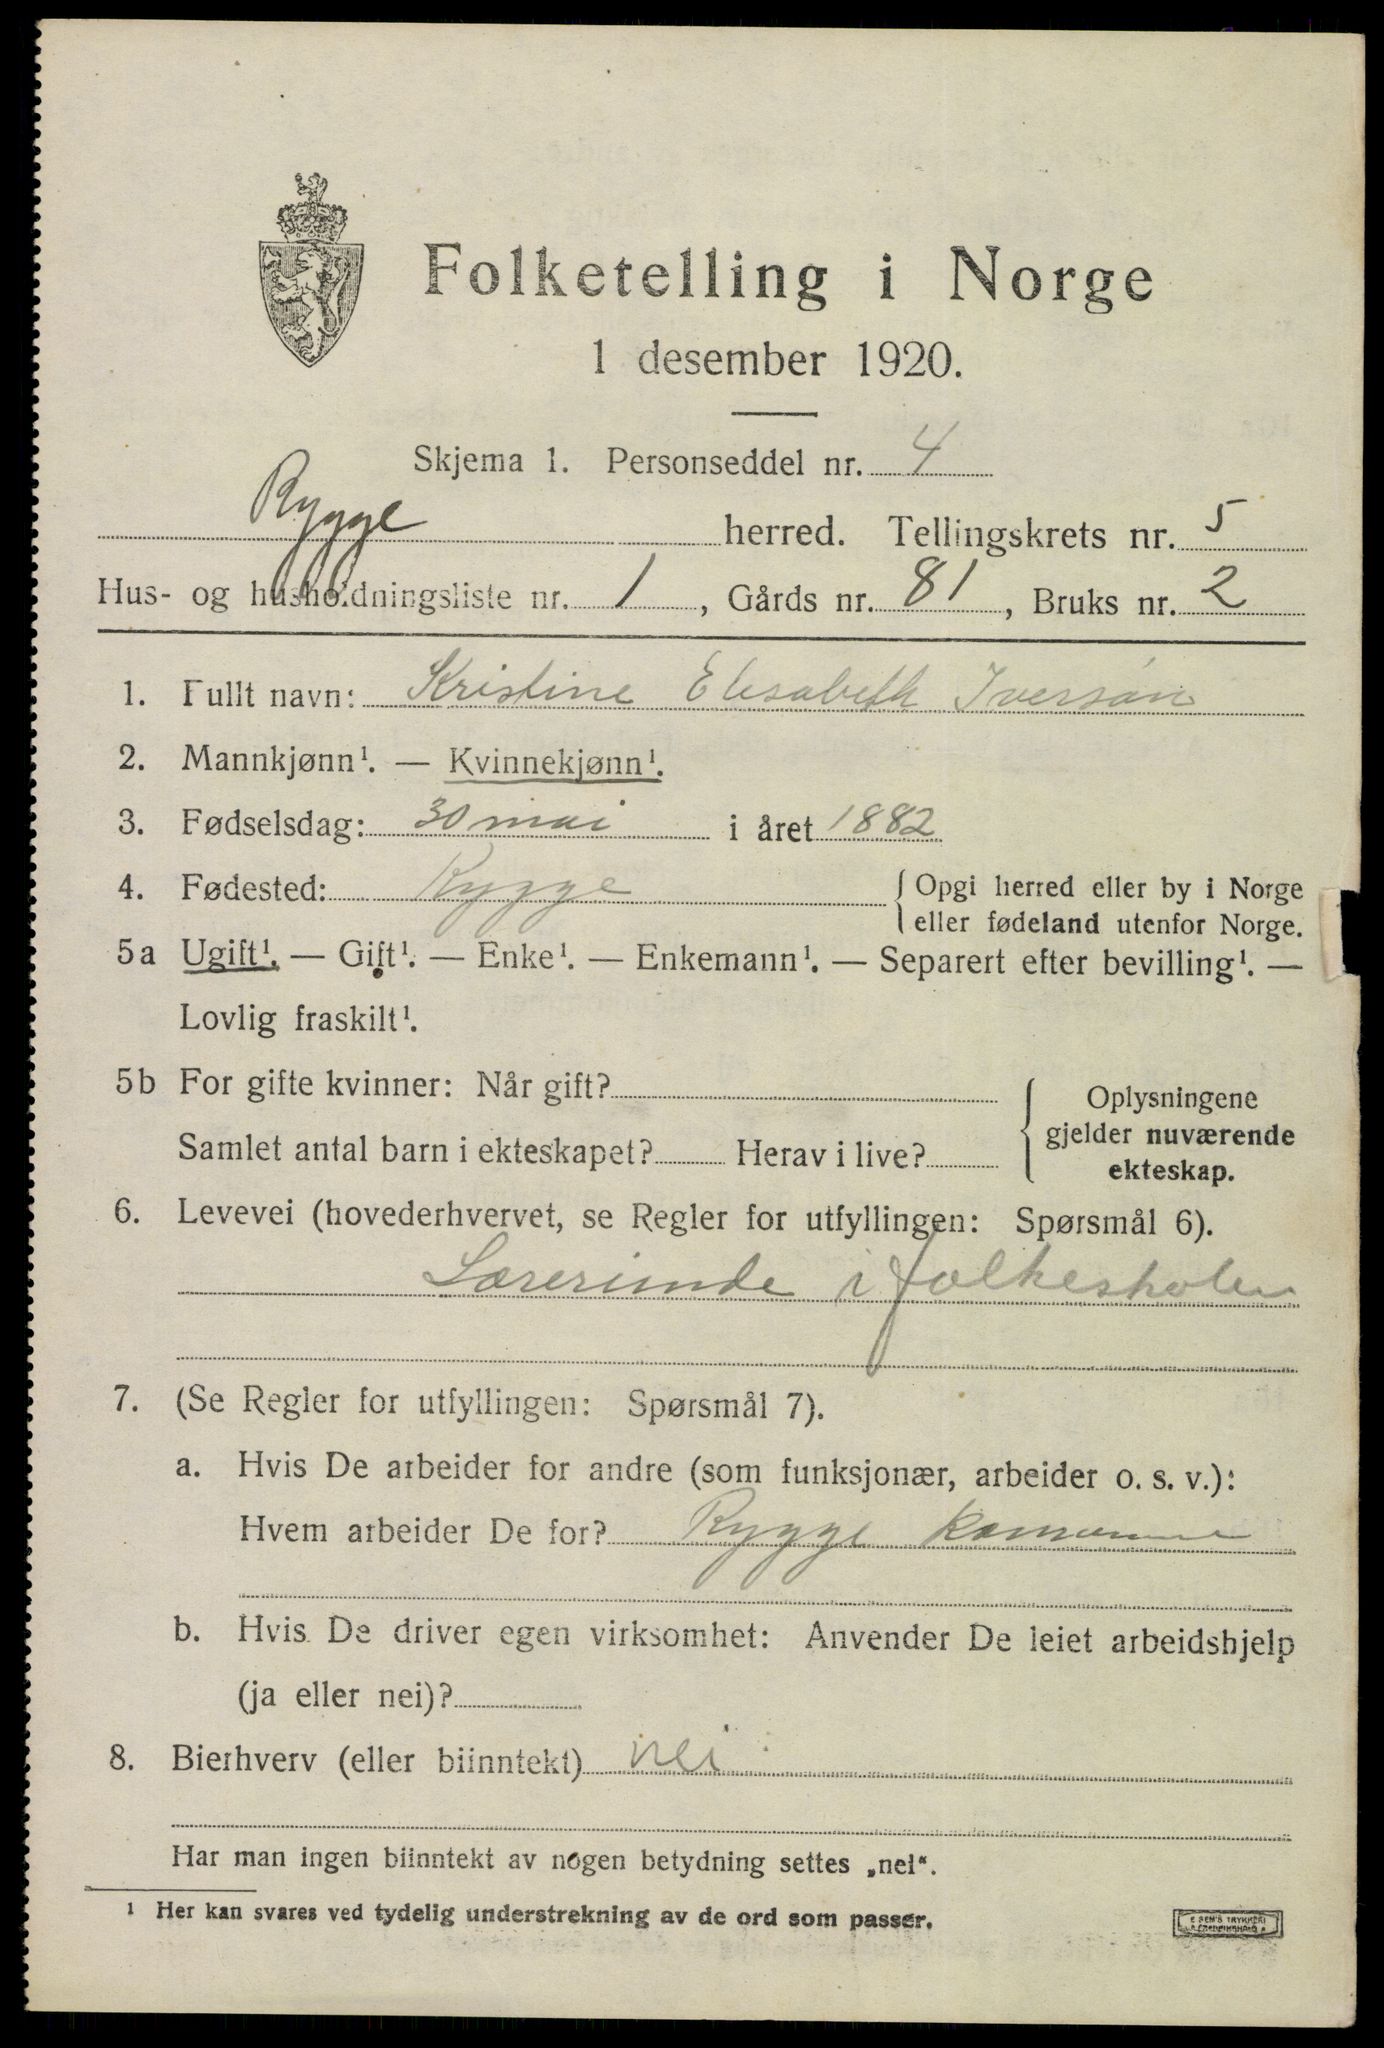 Folketelling i Norge
1 desember 1920.
Skjema 1. Personseddel nr. 4
Rygge herred. Tellingskrets nr. 5
Hus- og husholdningsliste nr. 1, Gårds nr. 81, Bruks nr. 2
1. Fullt navn: Kristine Elisabeth Iversøn
2. Mannkjønn¹. — Kvinnekjønn¹.
3. Fødselsdag: 30 mai i året 1882
4. Fødested: Rygge {Opgi herred eller by i Norge
eller fødeland utenfor Norge.
5a Ugift¹. — Gift¹. — Enke¹. — Enkemann¹. — Separert efter bevilling¹. —
Lovlig fraskilt¹.
5b For gifte kvinner: Når gift? {Oplysningene
gjelder nuværende
Samlet antal barn i ekteskapet? Herav i live?
ekteskap.
6. Levevei (hovederhvervet, se Regler for utfyllingen: Spørsmål 6).
Lærerinde i folkeskolen
7. (Se Regler for utfyllingen: Spørsmål 7).
a. Hvis De arbeider for andre (som funksjonær, arbeider o. s. v.):
Hvem arbeider De for? Rygge komune
b. Hvis De driver egen virksomhet: Anvender De leiet arbeidshjelp
(ja eller nei)?
8. Bierhverv (eller biinntekt) nei
Har man ingen biinntekt av nogen betydning settes „nei“.
¹ Her kan svares ved tydelig understrekning av de ord som passer.
E SEM'S TRYKKERI
FREDRIKSHALD